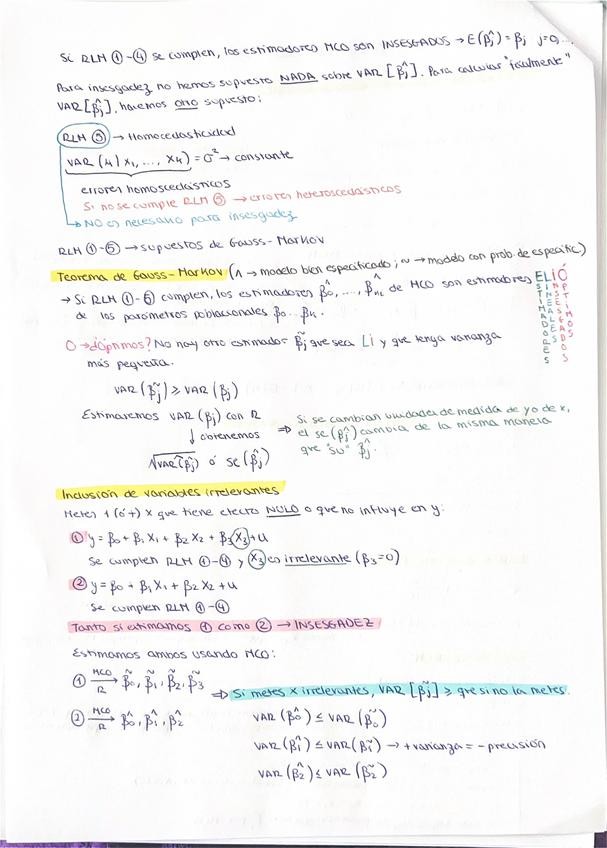 Si RLM ①-④ se cumplen, los estimadores MCO son INSESGADOS → E(β̂j) = βj j=0,...
Para insesgadez no hemos supuesto NADA sobre VAR [β̂j]. Para calcular "fácilmente"
VAR[β̂j], haremos otro supuesto:
RLM ⑤ → Homocedasticidad
VAR (u|x1, ..., xk) = σ² → constante
errores homoscedásticos
Si no se cumple RLM ⑤ → errores heteroscedásticos
↳ NO es necesario para insesgadez
RLM ①-⑤ → supuestos de Gauss-Markov
Teorema de Gauss-Markov (^ → modelo bien especificado; ~ → modelo con prob. de especific.)
→ Si RLM ①-⑤ cumplen, los estimadores β̂0, ..., β̂k de MCO son estimadores ELIÓ
de los parámetros poblacionales β0...βk.
ESTIMADORES
LINEALES
INSESGADOS
ÓPTIMOS
O → ¿Óptimos? No hay otro estimador β̃j que sea LI y que tenga varianza
más pequeña.
VAR (β̃j) ≥ VAR (βj)
Estimaremos VAR (βj) con R
↓ obtenemos
√VAR(β̂j) ó se(β̂j)
⇒ Si se cambian unidades de medida de y o de x,
el se(β̂j) cambia de la misma manera
que "su" β̂j.
Inclusión de variables irrelevantes
Meter 1 (ó +) x que tiene efecto NULO o que no influye en y:
① y = β0 + β1 X1 + β2 X2 + β3 X3 + u
Se cumplen RLM ①-④ y X3 es irrelevante (β3=0)
② y = β0 + β1 X1 + β2 X2 + u
Se cumplen RLM ①-④
Tanto si estimamos ① como ② → INSESGADEZ
Estimamos ambos usando MCO:
① MCO/R → β̃0, β̃1, β̃2, β̃3
⇒ Si metes x irrelevantes, VAR [β̃j] ≥ que si no la metes.
② MCO/R → β̂0, β̂1, β̂2
VAR (β̂0) ≤ VAR (β̃0)
VAR (β̂1) ≤ VAR (β̃1) → + varianza = - precisión
VAR (β̂2) ≤ VAR (β̃2)